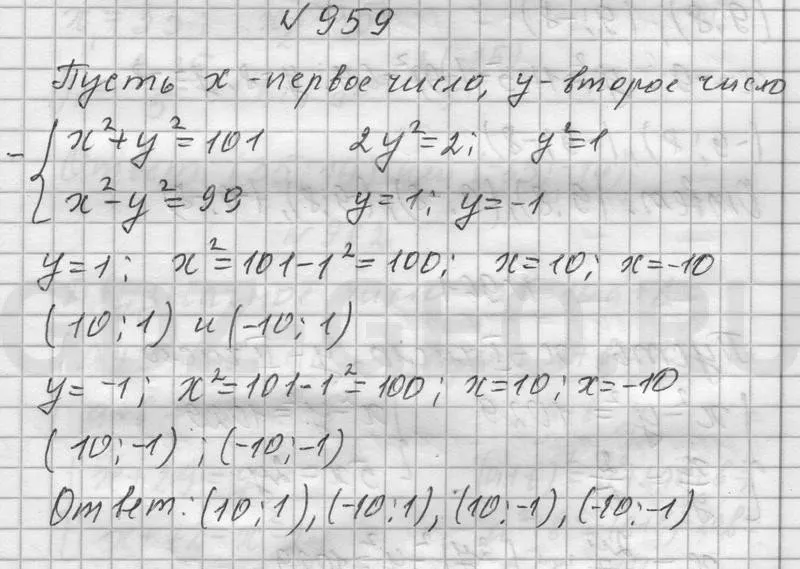 №959
Пусть x - первое число, y - второе число
- { x²+y²=101    2y²=2;  y²=1
x²-y²=99    y=1; y=-1
y=1; x²=101-1²=100; x=10; x=-10
(10;1) и (-10;1)
y=-1; x²=101-1²=100; x=10; x=-10
(10;-1); (-10;-1)
Ответ: (10;1), (-10;1), (10;-1), (-10;-1)